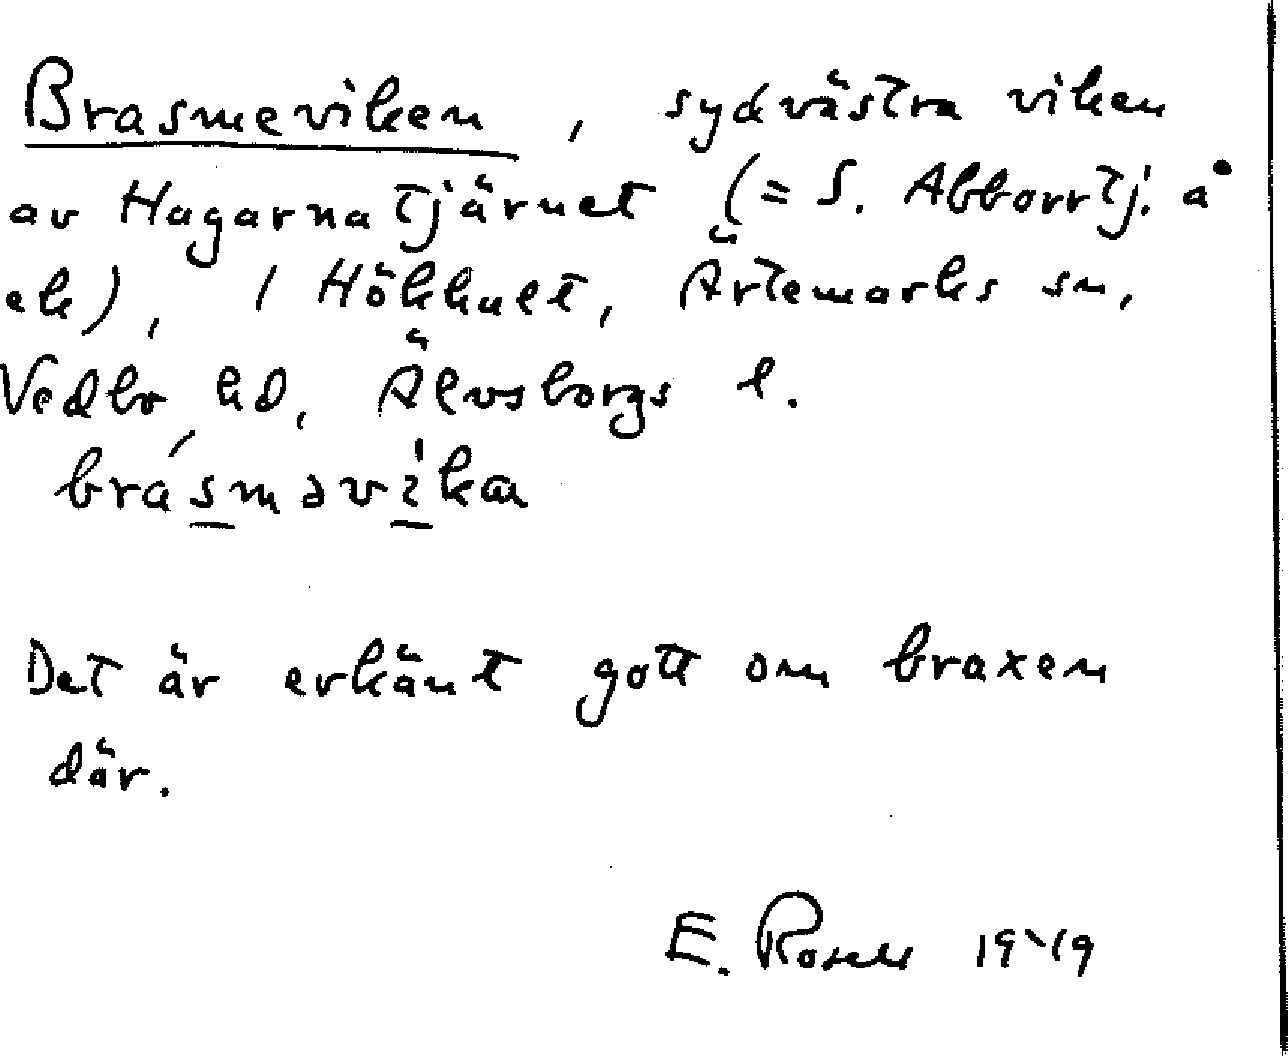 Brasmeviken, sydvästra viken
av Hagarnatjärnet (= S. Abborrtj. å
ek), i Hökhult, Ärtemarks sn,
Vedbo hd, Älvsborgs l.
brásməvìka
Det är erkänt gott om braxen
där.
E. Rosell 1949